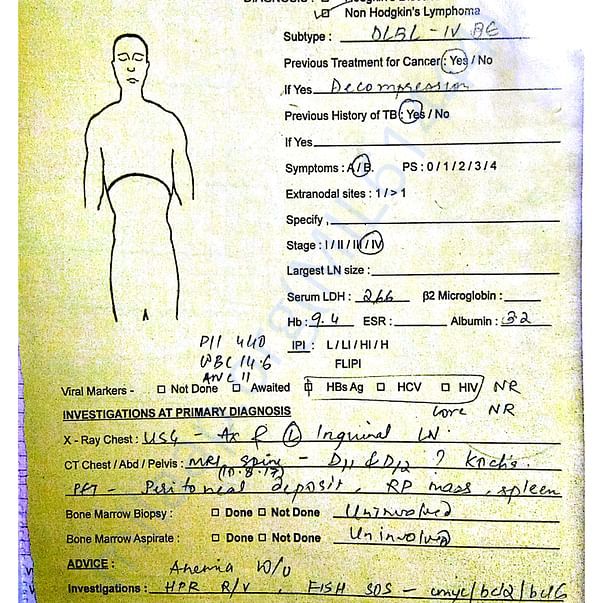 DIAGNOSIS :
Non Hodgkin's Lymphoma
Subtype : DLBL - IV BE
Previous Treatment for Cancer : Yes / No
If Yes Decompression
Previous History of TB : Yes / No
If Yes
Symptoms : A / B. PS : 0 / 1 / 2 / 3 / 4
Extranodal sites : 1 / > 1
Specify ,
Stage : I / II / III / IV
Largest LN size :
Serum LDH : 266 β2 Microglobin :
Hb : 9.4 ESR : Albumin : 3.2
Plt 440 IPI : L / LI / HI / H
WBC 14.6 FLIPI
ANC 11
Viral Markers - Not Done Awaited HBs Ag HCV HIV NR
core NR
INVESTIGATIONS AT PRIMARY DIAGNOSIS
X - Ray Chest : USG - Ax & L Inguinal LN.
CT Chest / Abd / Pelvis : MRI spine - D11 & D12 ? Koch's.
(10.8.17)
PET - Peritoneal deposit, RP mass, spleen
Bone Marrow Biopsy : Done Not Done Uninvolved
Bone Marrow Aspirate : Done Not Done Uninvolved
ADVICE : Anemia W/U
Investigations : HPR R/V, FISH SOS - cmyc/bcl2/bcl6